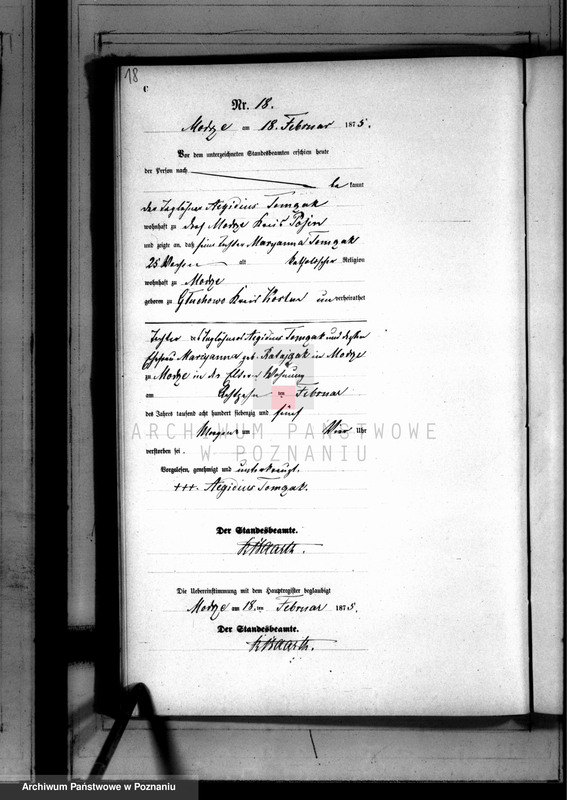 18
C
Nr. 18.
Modrze am 18. Februar 1875.
Vor dem unterzeichneten Standesbeamten erschien heute
der Person nach
bekannt
der Tagelöhner Aegidius Tomzak
wohnhaft zu Dorf Modrze Kreis Posen
und zeigte an, daß seine Tochter Maryanna Tomzak
25 Wochen alt katholischer Religion
wohnhaft zu Modrze
geboren zu Gluchowo Kreis Kosten unverheirathet
Tochter des Tagelöhners Aegidius Tomzak und dessen
Ehefrau Maryanna geb. Ratajzak in Modrze
zu Modrze in der Wohnung
am Achtzehnten Februar
des Jahres tausend acht hundert siebenzig und fünf
Morgens um Vier Uhr
verstorben sei.
Vorgelesen, genehmigt und unterkreuzt.
+++. Aegidius Tomzak.
Der Standesbeamte.
Die Uebereinstimmung mit dem Hauptregister beglaubigt
Modrze am 18.ten Februar 1875.
Der Standesbeamte.
ARCHIWUM PAŃSTWOWE
W POZNANIU
Archiwum Państwowe w Poznaniu